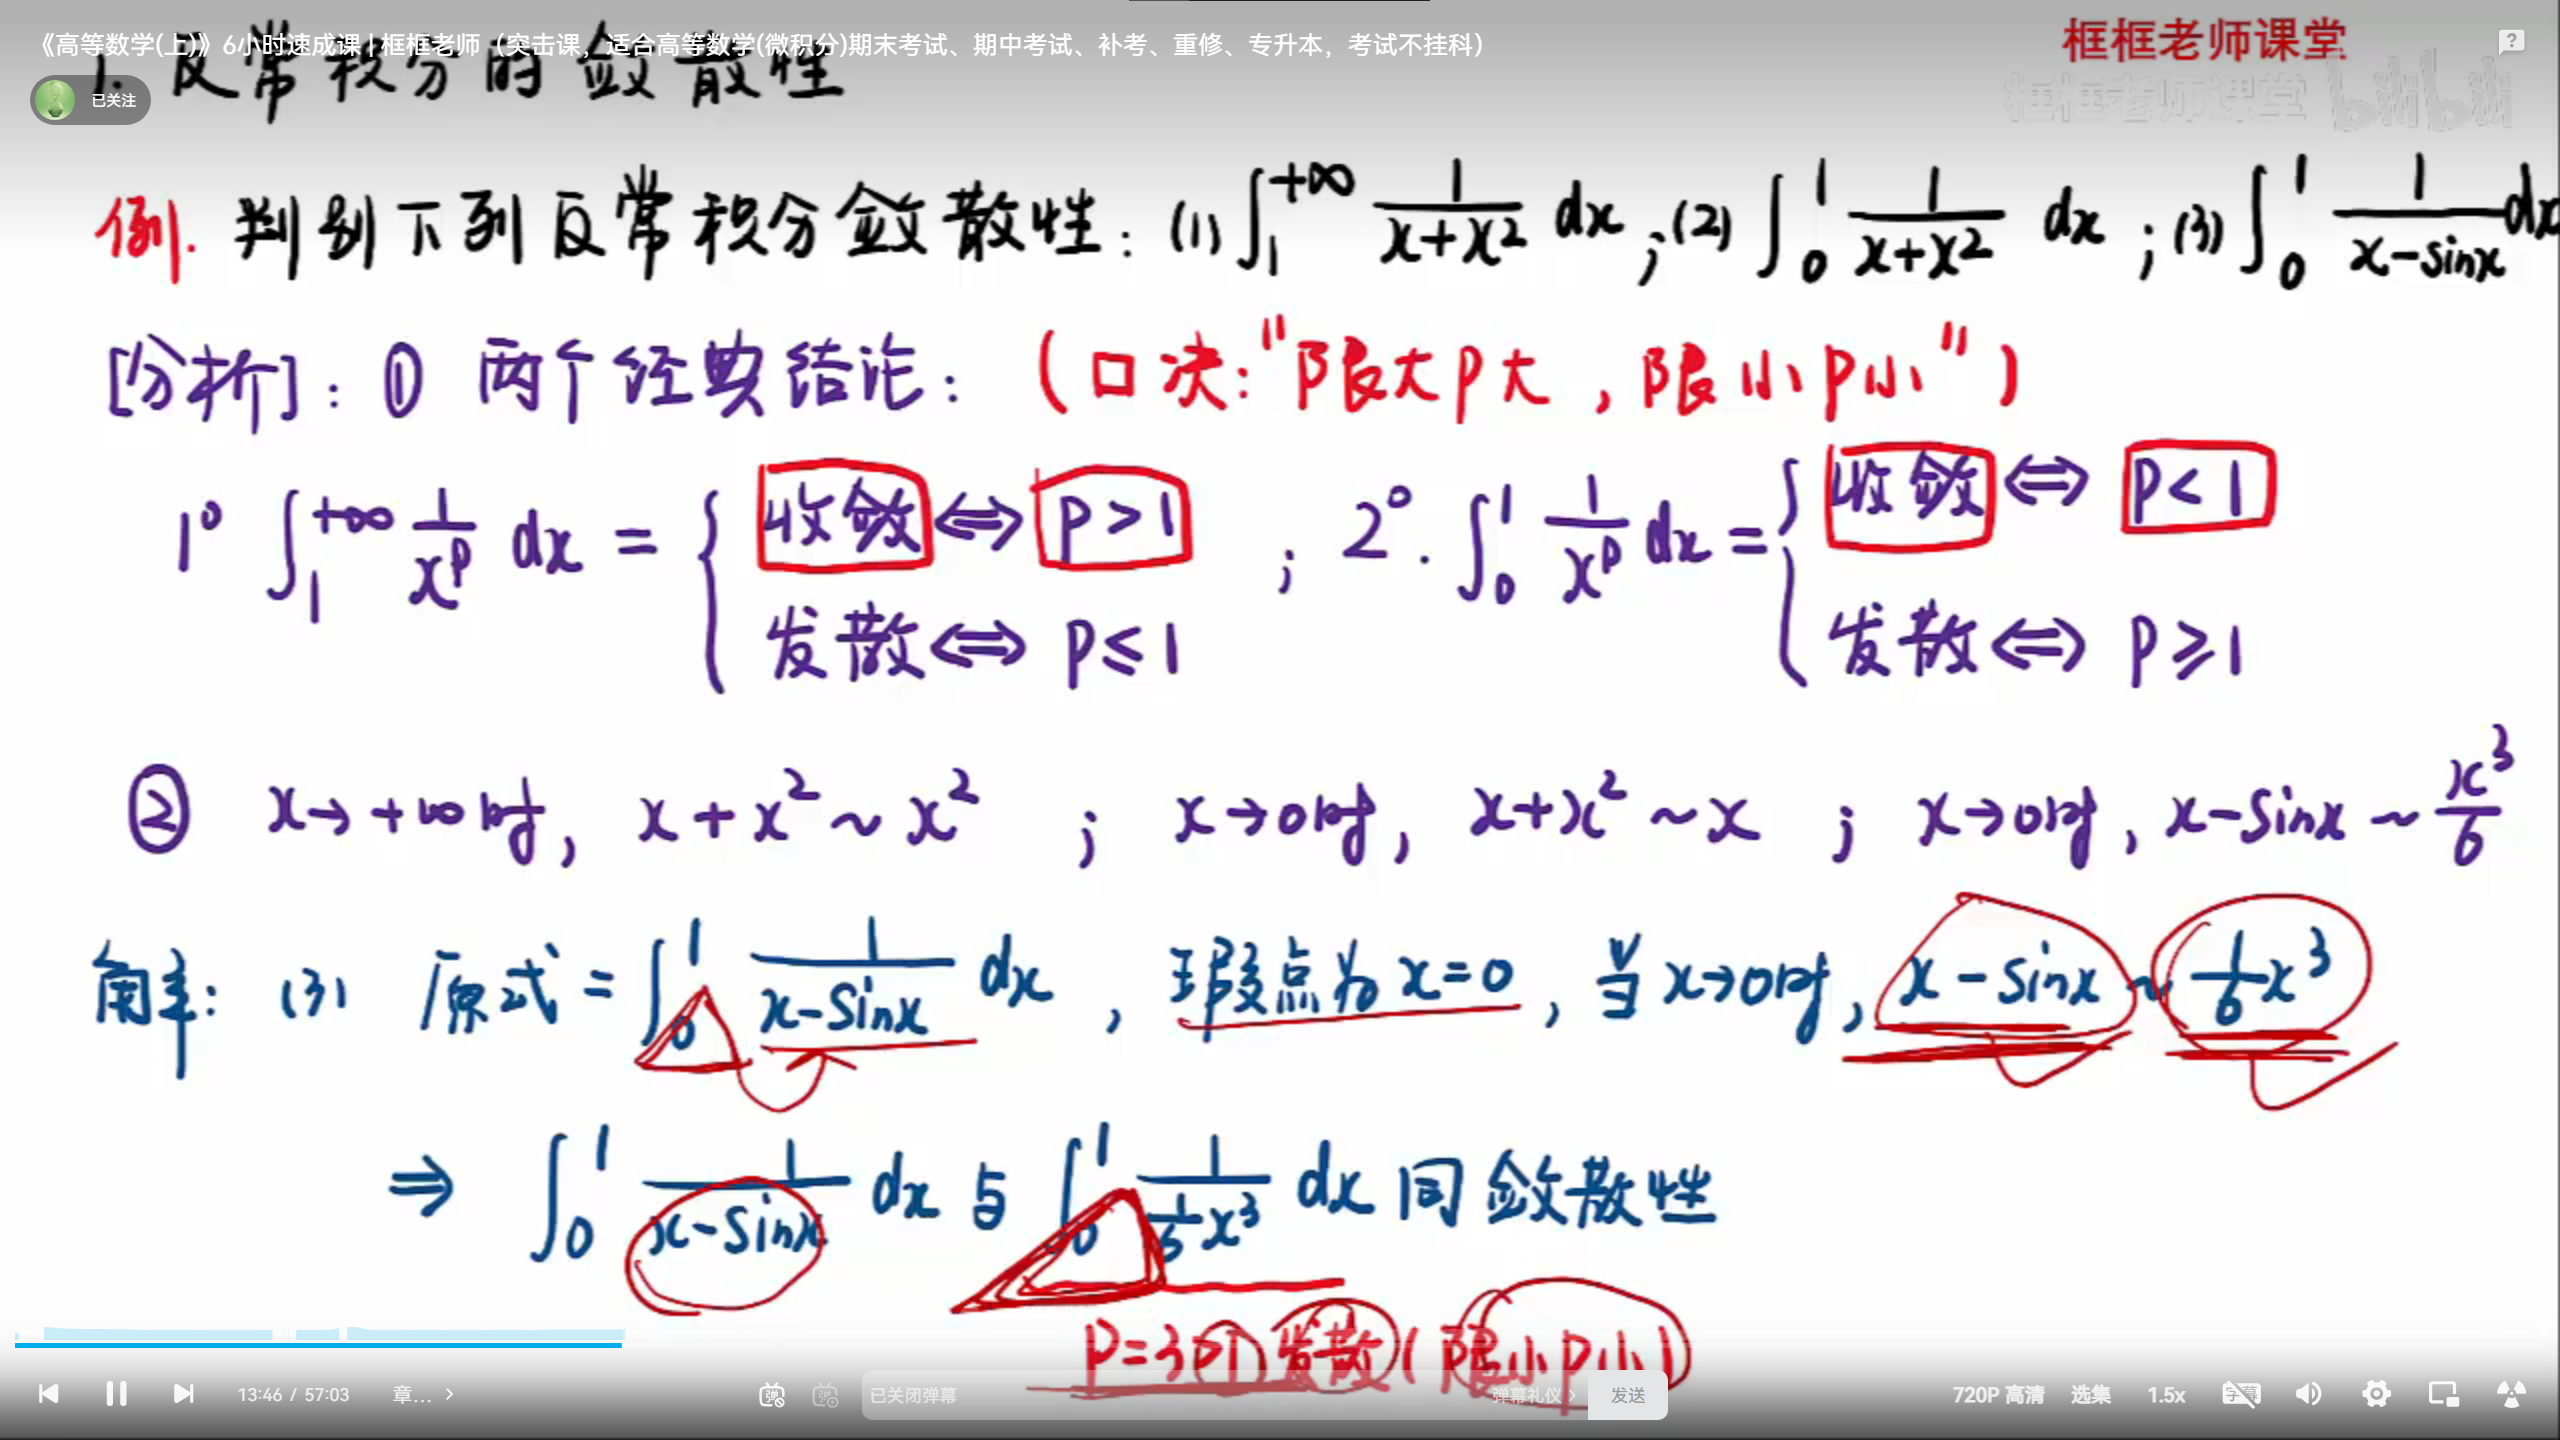 《高等数学(上)》6小时速成课 | 框框老师（突击课，适合高等数学(微积分)期末考试、期中考试、补考、重修、专升本，考试不挂科）
框框老师课堂
框框老师课堂 bilibili
已关注
1. 反常积分的敛散性
例. 判别下列反常积分敛散性: (1) ∫₁^{+∞} 1/(x+x²) dx ; (2) ∫₀^1 1/(x+x²) dx ; (3) ∫₀^1 1/(x-sinx) dx
[分析]: ① 两个经典结论: (口决:"限大P大, 限小P小")
1° ∫₁^{+∞} 1/x^p dx = { 收敛 ⇔ P>1 ; 2°. ∫₀^1 1/x^p dx = { 收敛 ⇔ P<1
发散 ⇔ P≤1 发散 ⇔ P≥1
② x→+∞时, x+x²~x² ; x→0时, x+x²~x ; x→0时, x-sinx~x³/6
解: (3) 原式 = ∫₀^1 1/(x-sinx) dx , 瑕点为x=0, 当x→0时, x-sinx ~ 1/6 x³
⇒ ∫₀^1 1/(x-sinx) dx 与 ∫₀^1 1/(1/6 x³) dx 同敛散性
P=3>1 发散 (限小P小)
13:46 / 57:03
章...
弹
弹
已关闭弹幕
弹幕礼仪
发送
720P 高清
选集
1.5x
字幕